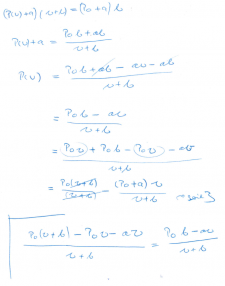 (P(v)+a)(v+b)=(P₀+a)b
P(v)+a = (P₀b+ab)/(v+b)
P(v) = (P₀b+ab-av-ab)/(v+b)
= (P₀b-av)/(v+b)
= (P₀v+P₀b-P₀v-av)/(v+b)
= P₀(v+b)/(v+b) - (P₀+a)v/(v+b)
(P₀(v+b)-P₀v-av)/(v+b) = (P₀b-av)/(v+b)